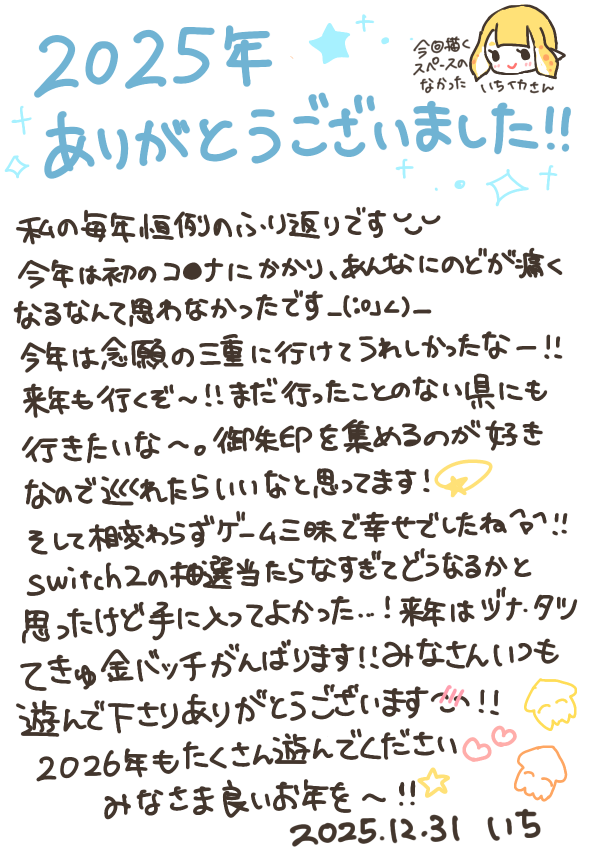 2025年
ありがとうございました!!
今回描く
スペースの
なかった
いちイカさん
私の毎年恒例のふり返りです
今年は初のコ●ナにかかり、あんなにのどが痛く
なるなんて思わなかったです_(:3」∠)_
今年は念願の三重に行けてうれしかったなー!!
来年も行くぞ〜!!まだ行ったことのない県にも
行きたいな〜。御朱印を集めるのが好き
なので巡れたらいいなと思ってます!
そして相変わらずゲーム三昧で幸せでしたね^▽^!!
switch2の抽選当たらなすぎてどうなるかと
思ったけど手に入ってよかった…!来年はヅナ・タツ
てきゅ金バッチがんばります!!みなさんいつも
遊んで下さりありがとうございます!!
2026年もたくさん遊んでください♡♡
みなさま良いお年を〜!!
2025.12.31 いち